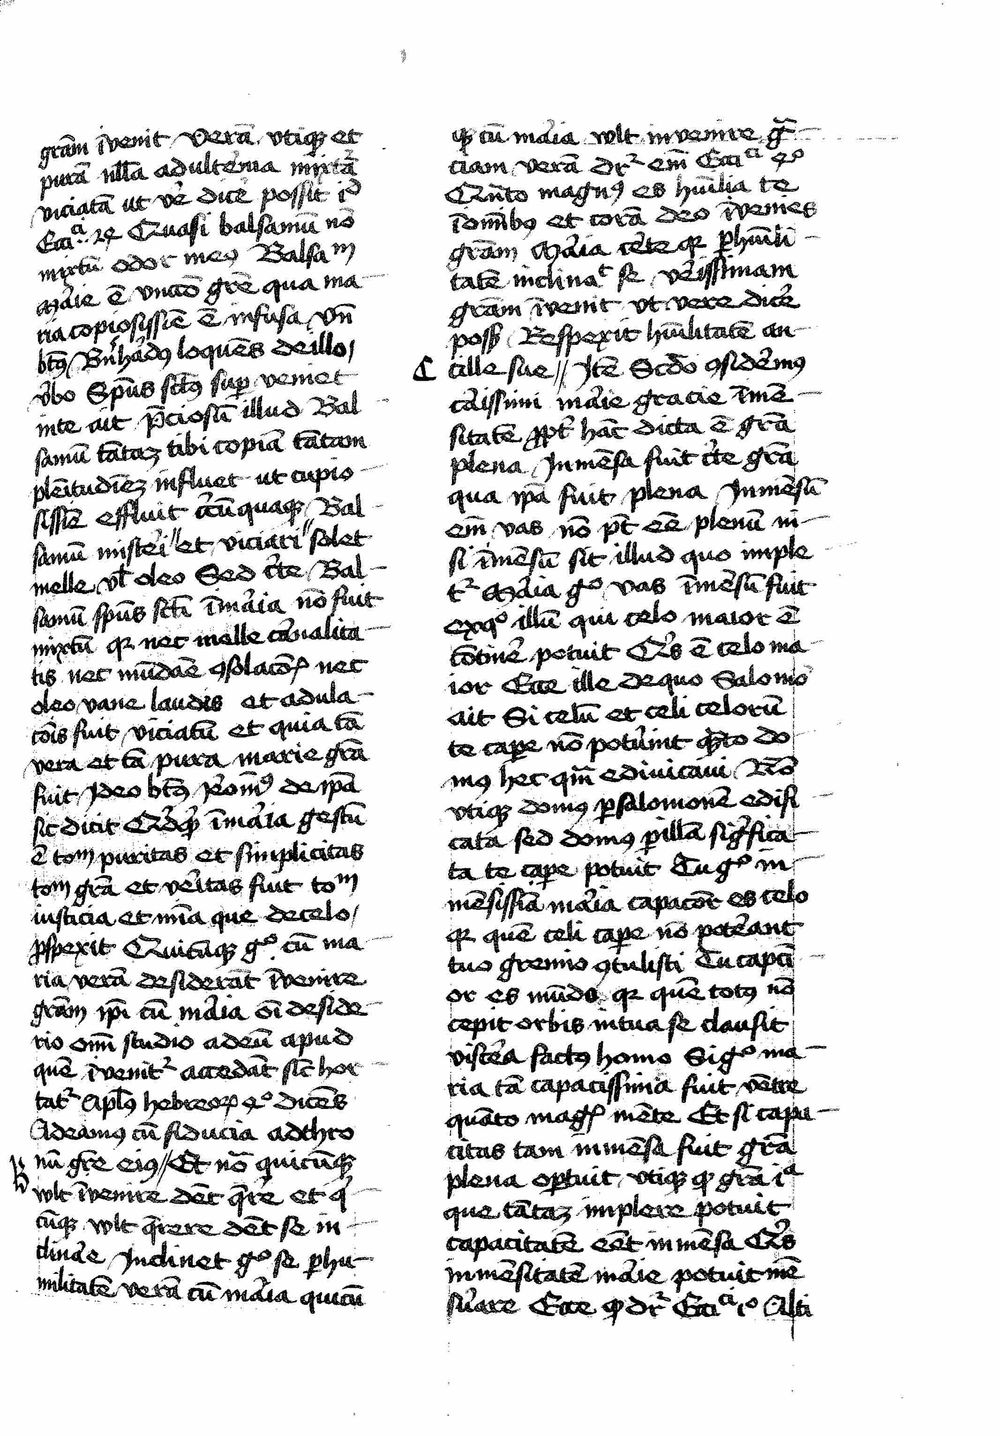 grām īvenit verā vtiqꝫ et
purā nllā adult'ina mixt'a
viciatā ut v'e dic'e possit id
Ecciᶜᵃ 24 Quasi balsamū nō
mixtū odor meꝰ Balsaᵐ
Marie ē vnctō gr̄e qua ma
ria copiosissie ē infusa Vn̄
btꝰ Bn'hardꝰ loquēs de illo
v'bo Sp̄us sctꝰ suꝑ veniet
in te ait p̄ciosū illud Bal
samū tātaꝫ tibi copiā tātam
plēitudīeꝫ influet ut cupio
sissie effluit c'cūquaqꝫ Bal
samū misceri et viciari solet
melle vl' oleo Sed c'te Bal
samū sp̄us scti ī maria nō fuit
mixtū qꝛ nec melle carnalita
tis nec mūdāe ꝯsolacōis nec
oleo vane laudis et adula
cōis fuit viciatū et quia tā
vera et tā pura marie grā
fuit Ideo btꝰ Ieronīꝰ de ipā
sic dicit Quidqd ī maria gestū
ē toᵐ puritas et simplicitas
toᵐ grā et v'itas fuit toᵐ
iusticia et mīa que de celo
ꝓspexit Quicūqꝫ gᵒ cū ma
ria verā desiderāt īvenire
grām ip̄i cū maria oī deside
rio om̄i studio ad eū apud
quē īvenitᵗ accedāt sic hor
tatᵗ Apl'us hebreoꝝ 4ᵒ dicēs
Adeamꝰ cū fiducia ad thro
nū gr̄e eiꝰ Et nō quicūqꝫ
wlt īvenire dēt q̄rere et qi
cūqꝫ wlt q̄rere dēt se in
clinare Inclinet gᵒ se ꝑ hu
militatē verā cū maria quicū
qꝫ cū maria wlt invenire gr̄a
ciam verā Drᵗ em̄ Ecciᶜⁱ 4ᵒ
Quāto magnꝰ es humilia te
ī omībus et corā deo īvenies
grām Maria c'te qꝛ ꝑ humili
tatē inclinaᵗ se v'issimam
grām īvenit ut vere dic'e
possꝫ Respexit hūilitatē an
cille sue Itē Scdo ꝯsid'emꝰ
c'issimi marie gracie īmē
sitatē ꝓpt' hāc dicta ē grā
plena Inmēsa fuit c'te grā
qua ipā fuit plena Inmēsū
em̄ vas nō pt ēē plenū ni
si īmēsū sit illud quo imple
tᵗ Maria gᵒ vas īmēsū fuit
ex qᵒ illū qui celo maior ē
cōtinē potuit Qis ē celo ma
ior Ecce ille de quo Salomō
ait Si celū et celi celorū
te cape nō potūint qnto do
mꝰ hec qm̄ edivicavi Nō
vtiqꝫ domꝰ ꝑ salomonē edifi
cata sed domꝰ ꝑ illā sigifica
ta te cape potuit Tu gᵒ in
mēsissia maria capacor es celo
qꝛ quē celi cape nō poterant
tuo gremio ꝯtulisti Tu capci
or es mūdo qꝛ quē totꝰ nō
cepit orbis in tua se clausit
viscera factꝰ homo Si gᵒ ma
ria tā capacissima fuit vētre
quāto magꝭ mēte Et si capa
citas tam inmēsa fuit grā
plena oportuit vtiqꝫ qꝫ grā iᵃ
que tātaꝫ implere potuit
capacitatē eēt inmēsa Qis
inmēsitatē marie potuit mē
surare Ecce qd drᵗ Ecciᶜⁱ 1ᵒ Alti